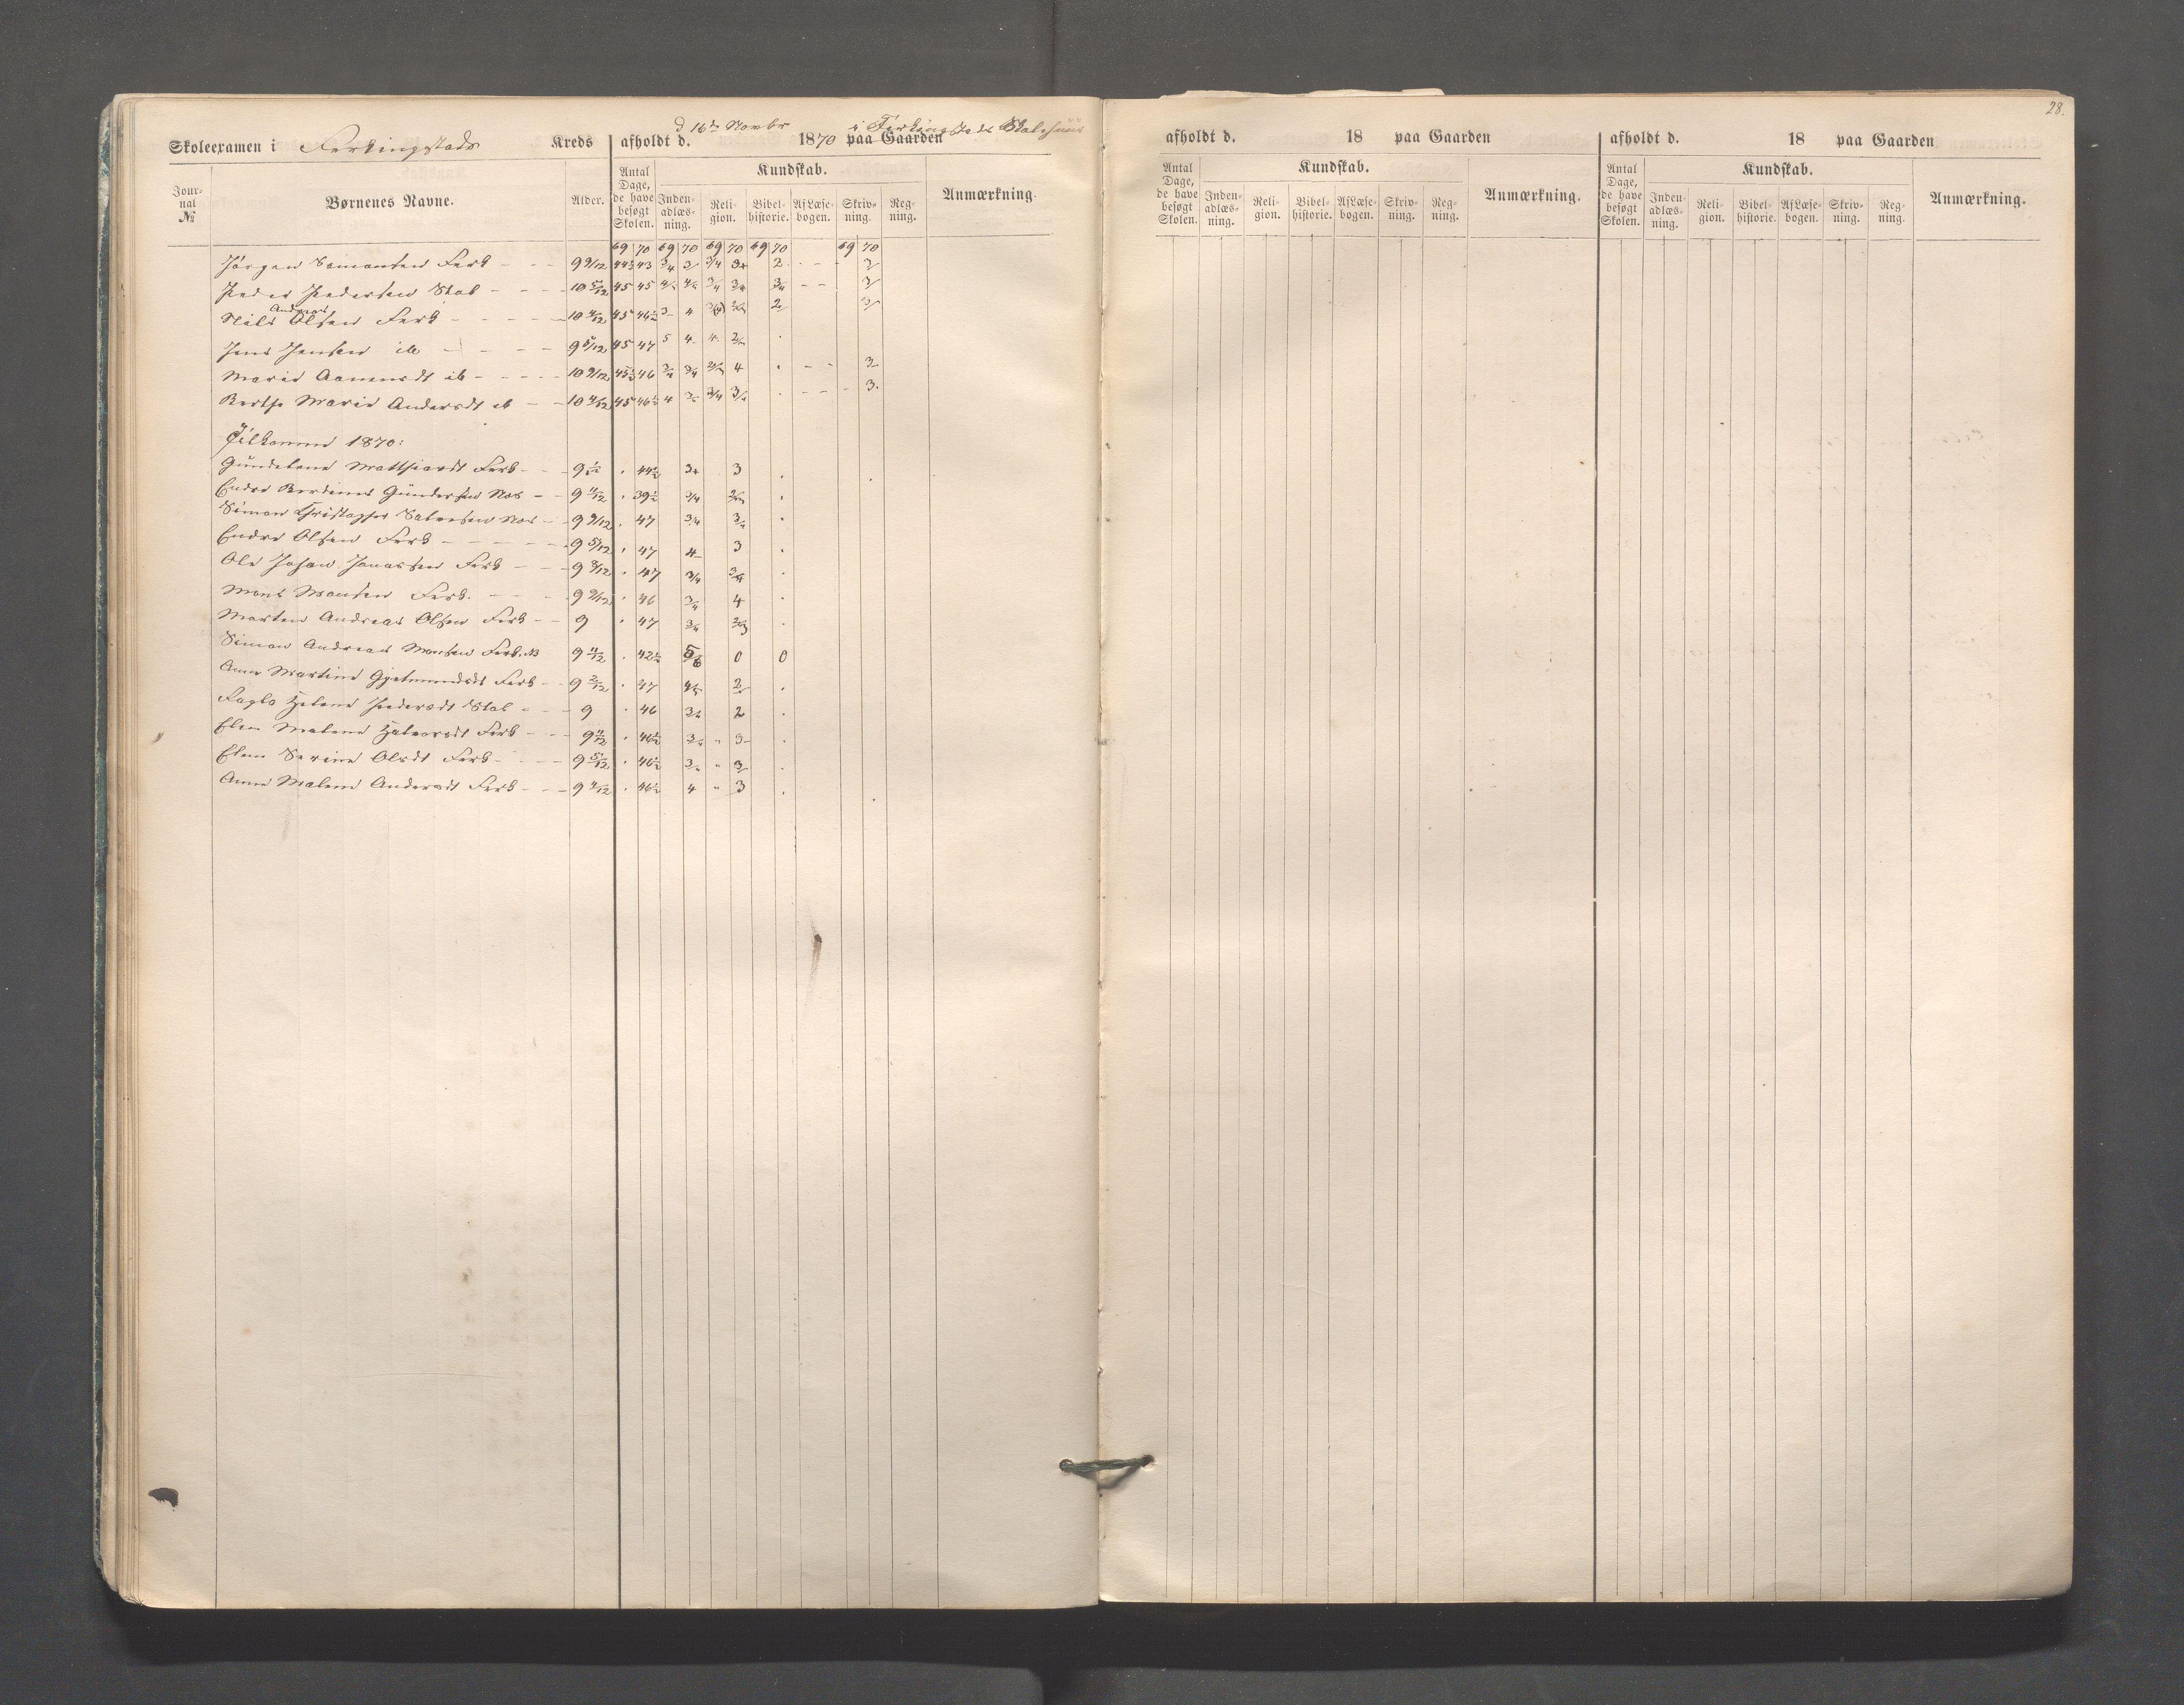 28.
Skoleexamen i Ferkingstads Kreds afholdt d. 16de Novbr 1870 paa Gaarden i Ferkingstads Skolehuus
Jour-nal № Børnenes Navne. Alder. Antal Dage, de have besøgt Skolen. Kundskab. Inden-adlæs-ning. Reli-gion. Bibel-historie. Af Læse-bogen. Skriv-ning. Reg-ning. Anmærkning.
69 70 69 70 69 70 69 70 69 70
Jørgen Samonsen Ferk - - - 9 9/12 44½ 43 3/4 3 3/4 3+ 2 - - - 3
Peder Pedersen Stol - - - - 10 5/12 45 45
Nils Andreas Olsen Ferk - - - - 10 4/12 45 46½ 3 4 2 3
Jens Jensen ib - - - - 9 5/12 45 47 5 4 4
Marie Aamundsdt ib - - - - - 10 9/12 45½ 46 4 - - 3
Berthe Marie Andersdt ib - - 10 4/12 45 46½ 4 3/4 - - - 3.
Tilkomne 1870:
Gundelene Matthiasdt Ferk - - 9 1/12 44½ 3+ 3
Endre Berdines Gundersen Nes - - 9 11/12 39½ 3/4
Simon Christopher Salvesen Nes - - 9 9/12 47 3/4
Endre Olsen Ferk - - - - - 9 5/12 47 4 3
Ole Johan Jonassen Ferk - - 9 8/12 47 3/4 3/4
Mons Monsen Ferk. - - - 9 9/12 46 3/4 4
Morten Andreas Olsen Ferk - - 9 47 3/4 2/3
Simon Andreas Monsen Ferk. NB 9 11/12 42½ 5/6 0 0
Anne Martine Gjetmundsdt Ferk - - 9 2/12 47 4/5 2
Helene Pedersdt Stol - - - 9 46 2
Elen Malene Halvorsdt Ferk - - - 9 11/12 46½ " 3
Elen Serine Olsdt Ferk - - - - 9 5/12 46½ " 3
Anne Malene Andersdt Ferk - - - 9 4/12 46½ 4 " 3
afholdt d. 18 paa Gaarden
Antal Dage, de have besøgt Skolen. Kundskab. Inden-adlæs-ning. Reli-gion. Bibel-historie. Af Læse-bogen. Skriv-ning. Reg-ning. Anmærkning.
afholdt d. 18 paa Gaarden
Antal Dage, de have besøgt Skolen. Kundskab. Inden-adlæs-ning. Reli-gion. Bibel-historie. Af Læse-bogen. Skriv-ning. Reg-ning. Anmærkning.